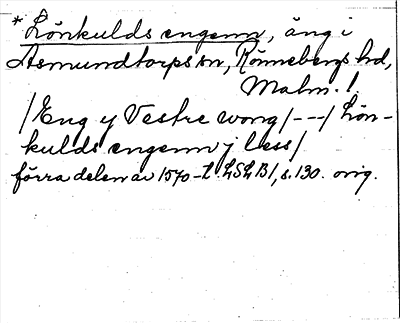 *Lönkulds engenn, äng i
Asmundtorps sn, Rönnebergs hd,
Malm. l.
/Eng y Vestre wong/---/Lön-
kulds engenn j less/
förra delen av 1570-t. LSLB1, s. 130. orig.